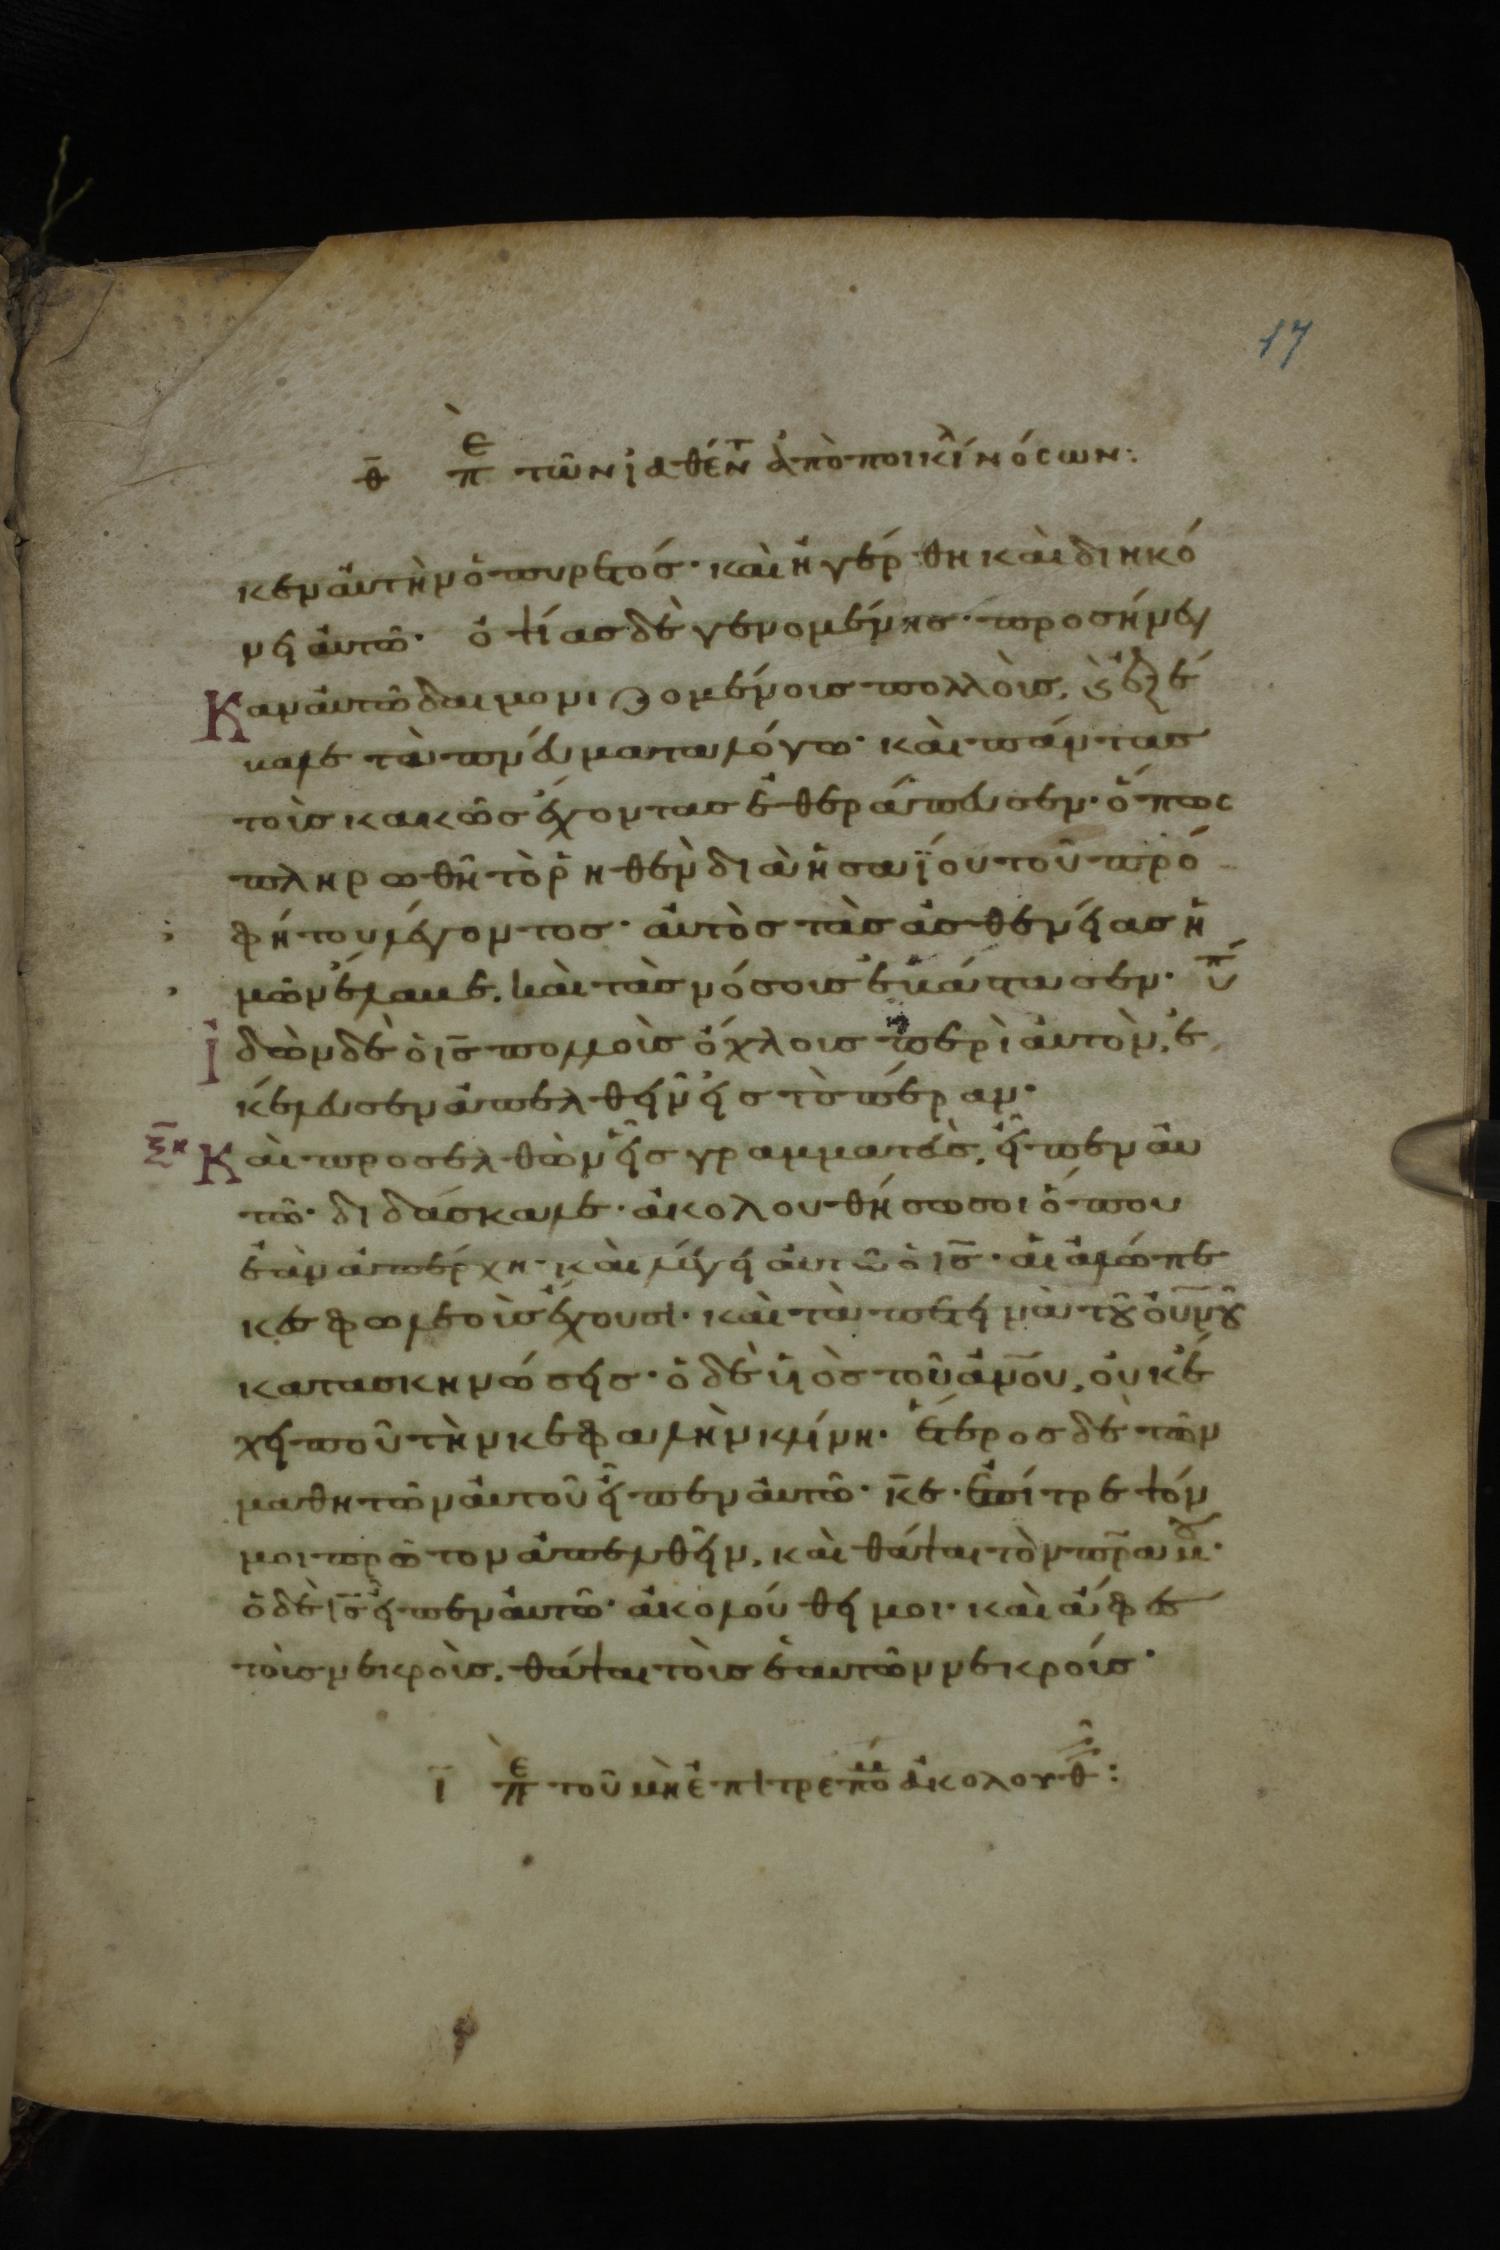 17
θ̄ πε τῶν ἰαθέντ ἀπὸ ποικίλ νόσων:
κεν ἀυτὴν ὁ πυρετός· καὶ ἠγέρθη καὶ διηκό
νει ἀυτῶ· ὀψίας δὲ γενομένης· προσήνεγ
Καν ἀυτῶ δαιμονιζομένους πολλοὺς, ϗ ἐξέ
βαλε τὰ πνέυματα λόγω· καὶ πάντας
τοὺς κακῶς ἔχοντας ἐθεράπευσεν· ὅπως
πληρωθῆ τὸ ῥηθὲν διὰ ἡσαΐου τοῦ πρό
φήτου λέγοντος· ἀυτὸς τὰς ἀσθενείας ἡ
μῶν ἔλαβε, καὶ τὰς νόσους ἐβάστασεν·
Ἰδὼν δὲ ὁ ις̄ πολλοὺς ὄχλους περὶ ἀυτὸν, ἐ
κέλευσεν ἀπελθεῖν εἰς τὸ πέραν·
ξη Κὰι προσελθὼν εἷς γραμματεὺς, εἶπεν ἀυ
τῶ· διδάσκαλε· ἀκολουθήσω σοι ὅπου
ἐὰν ἀπέρχη· καὶ λέγει ἀυτῶ ὁ ις̄· ἁι ἀλώπε
κες φωλεοὺς ἔχουσι· καὶ τὰ πετεινὰ τοῦ ουν̄οῦ
κατασκηνώσεις· ὁ δὲ ὑιὸς τοῦ ἀνο̄υ, οὐκ ἔ
χει ποῦ τὴν κεφαλὴν κλίνη· ἕτερος δὲ τῶν
μαθητῶν ἀυτοῦ εἶπεν ἀυτῶ· κ̄ε· ἐπίτρεψόν
μοι πρῶτον ἀπελθεῖν, καὶ θάψαι τὸν πρ̄α μου·
ὁ δὲ ις̄ εἶπεν ἀυτῶ· ἀκολούθει μοι· καὶ ἄφες
τοὺς νεκροὺς, θάψαι τοὺς ἑαυτῶν νεκρούς·
ῑ πε τοῦ μὴ ἐπιτρεπομ ἀκολουθ: